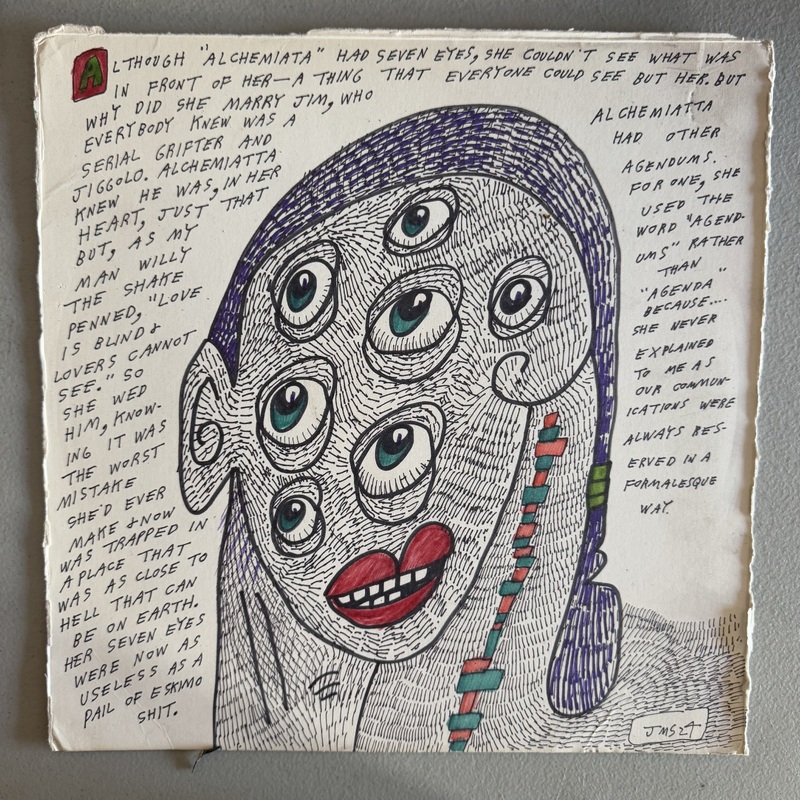 ALTHOUGH "ALCHEMIATA" HAD SEVEN EYES, SHE COULDN'T SEE WHAT WAS
IN FRONT OF HER—A THING THAT EVERYONE COULD SEE BUT HER. BUT
WHY DID SHE MARRY JIM, WHO
EVERYBODY KNEW WAS A
SERIAL GRIFTER AND
JIGGOLO. ALCHEMIATTA
KNEW HE WAS, IN HER
HEART, JUST THAT
BUT, AS MY
MAN WILLY
THE SHAKE
PENNED, "LOVE
IS BLIND &
LOVERS CANNOT
SEE." SO
SHE WED
HIM, KNOW-
ING IT WAS
THE WORST
MISTAKE
SHE'D EVER
MAKE & NOW
WAS TRAPPED IN
A PLACE THAT
WAS AS CLOSE TO
HELL THAT CAN
BE ON EARTH.
HER SEVEN EYES
WERE NOW AS
USELESS AS A
PAIL OF ESKIMO
SHIT.
ALCHEMIATTA
HAD OTHER
AGENDUMS.
FOR ONE, SHE
USED THE
WORD "AGEND-
UMS" RATHER
THAN
"AGENDA"
BECAUSE....
SHE NEVER
EXPLAINED
TO ME AS
OUR COMMUN-
ICATIONS WERE
ALWAYS RES-
ERVED IN A
FORMALESQUE
WAY.
JMS24